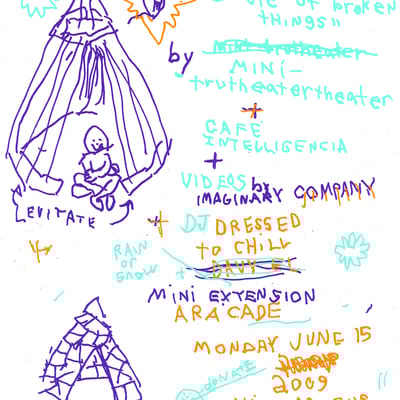 of broken
things"
by
mini-
truetheatertheater
+
CAFE
INTELLIGENCIA
+
VIDEOS by
IMAGINARY COMPANY
LEVITATE
+
DJ DRESSED
to CHILL
RAIN
OR
SNOW
MINI EXTENSION
ARACADE
MONDAY JUNE 15
2009
DONATE